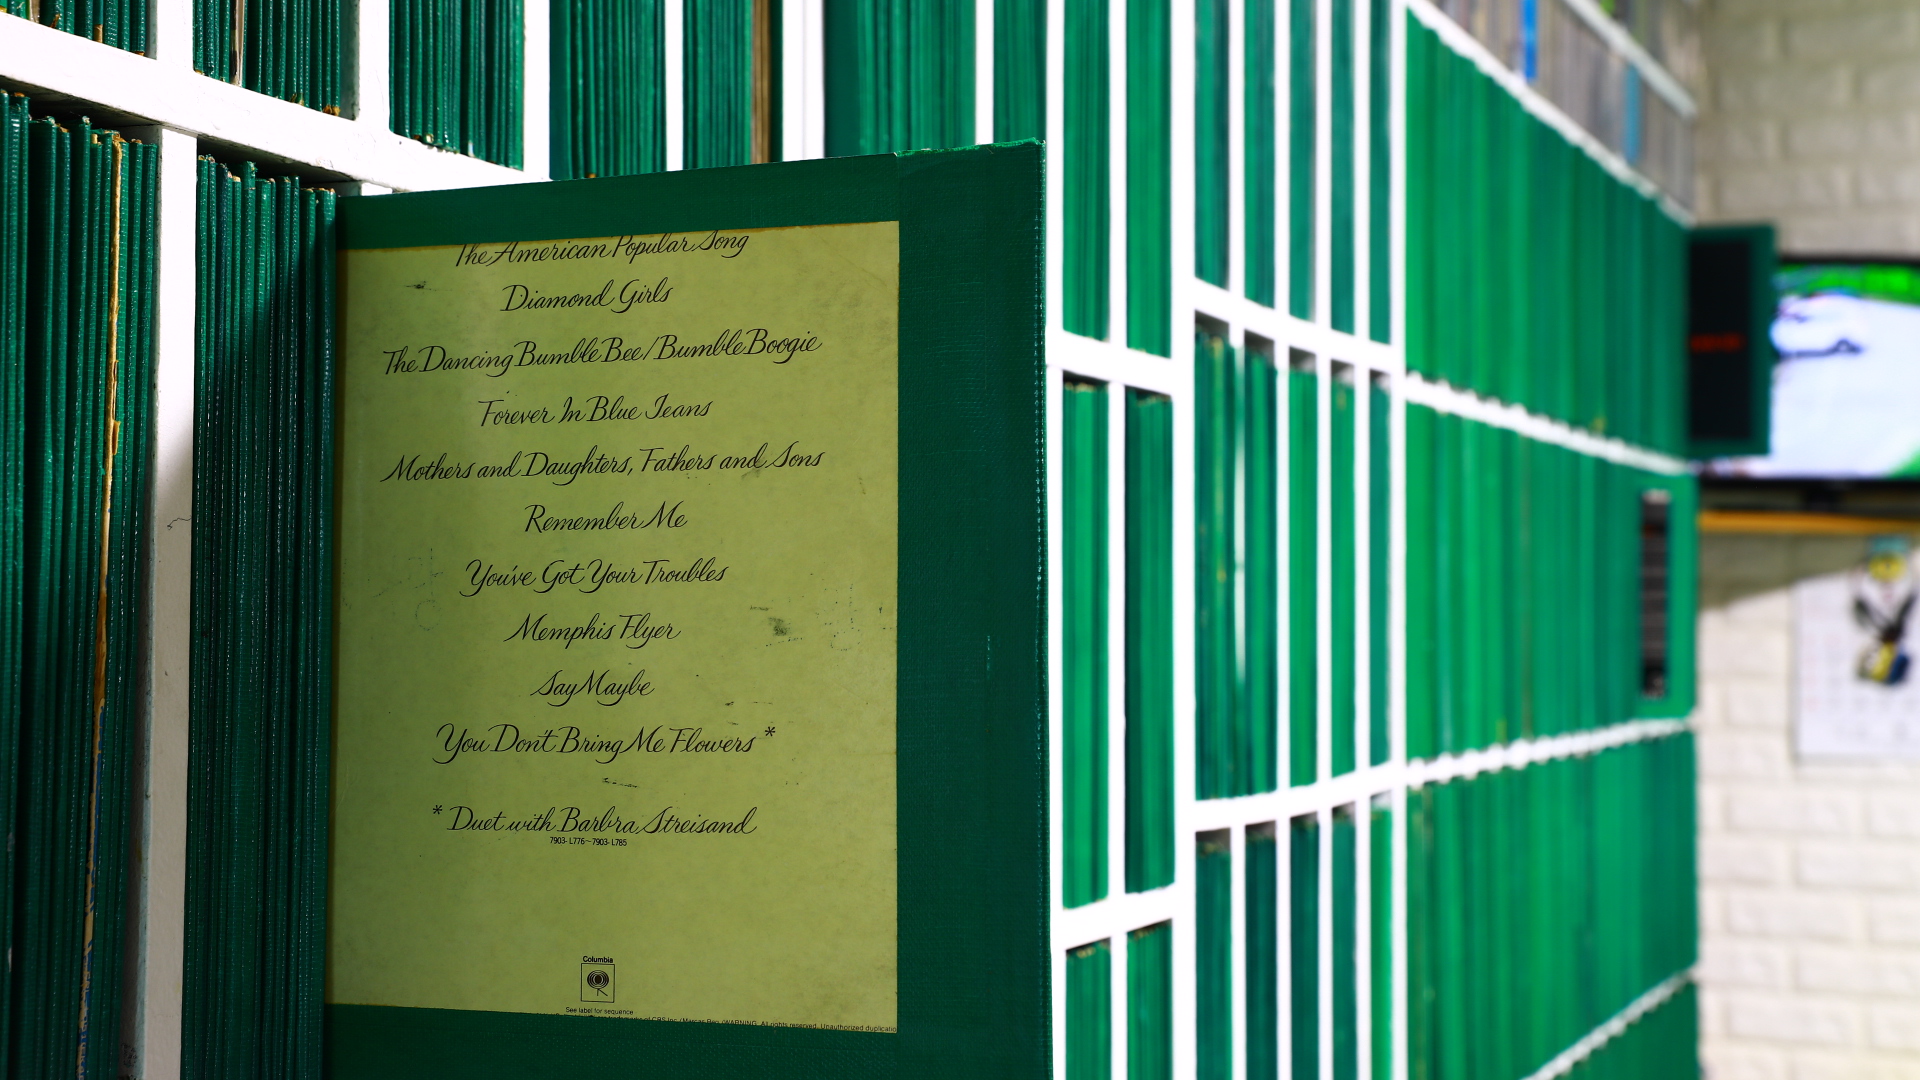 The American Popular Song
Diamond Girls
The Dancing Bumble Bee/Bumble Boogie
Forever In Blue Jeans
Mothers and Daughters, Fathers and Sons
Remember Me
You've Got Your Troubles
Memphis Flyer
Say Maybe
You Don't Bring Me Flowers *
* Duet with Barbra Streisand
7903-L776~7903-L785
Columbia
See label for sequence
trademarks of CBS Inc./Marcas Reg./WARNING: All rights reserved. Unauthorized duplicatio